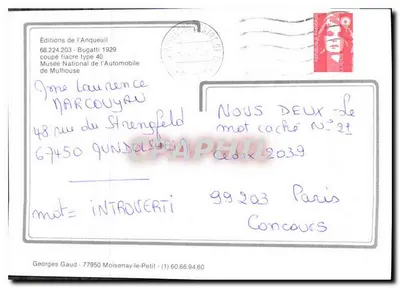 Editions de l'Anqueuil
68.224.203 - Bugatti 1929
coupé fiacre type 40
Musée National de l'Automobile
de Mulhouse
Mme Laurence
MARCOUYAU
48 rue du Strengfeld
67450
mot = INTROVERTI
NOUS DEUX - Le
mot caché N° 21
Cedex 2039
99203 Paris
Concours
Georges Gaud - 77950 Moisenay-le-Petit - (1) 60.66.94.60